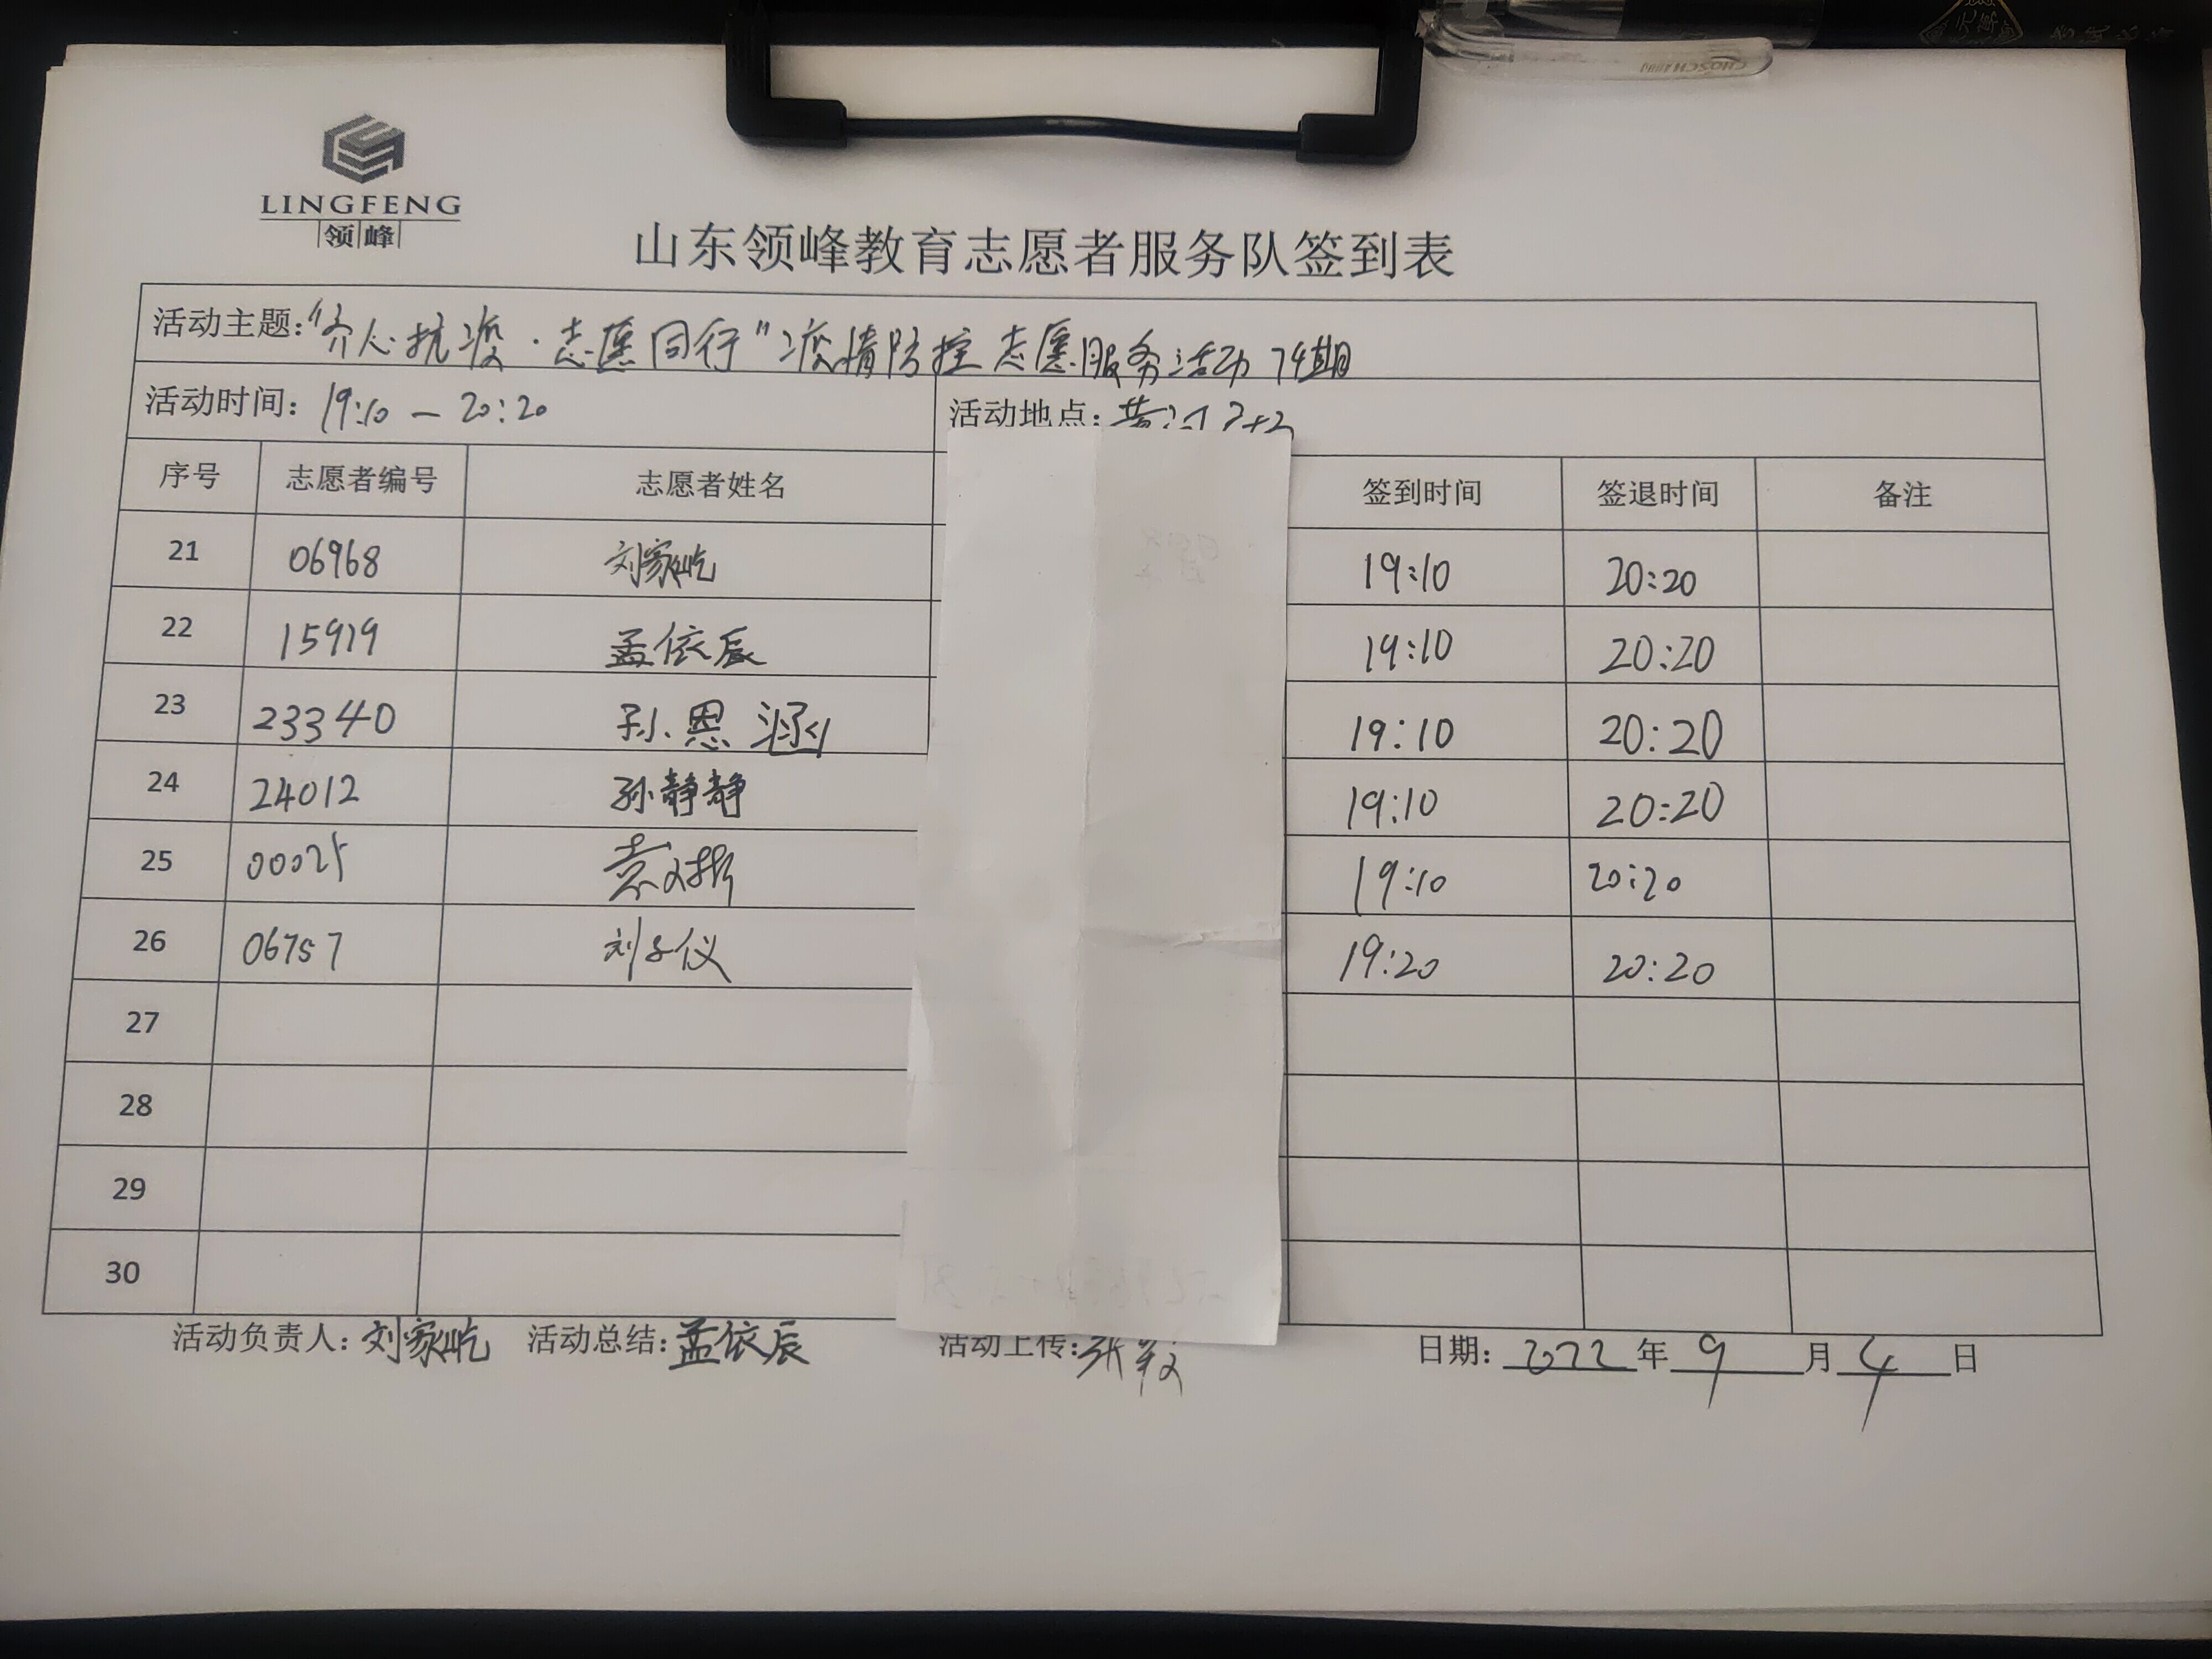 LINGFENG
领峰
山东领峰教育志愿者服务队签到表
活动主题:“齐心抗疫·志愿同行”疫情防控志愿服务活动74期
活动时间: 19:10 — 20:20 活动地点: 黄河
序号 志愿者编号 志愿者姓名 签到时间 签退时间 备注
21 06968 刘家屹 19:10 20:20
22 15919 孟依辰 19:10 20:20
23 23340 孙恩涵 19:10 20:20
24 24012 孙静静 19:10 20:20
25 00025 袁 19:10 20:20
26 06757 刘子仪 19:20 20:20
27
28
29
30
活动负责人: 刘家屹 活动总结: 孟依辰 活动上传: 张 日期: 2022 年 9 月 4 日